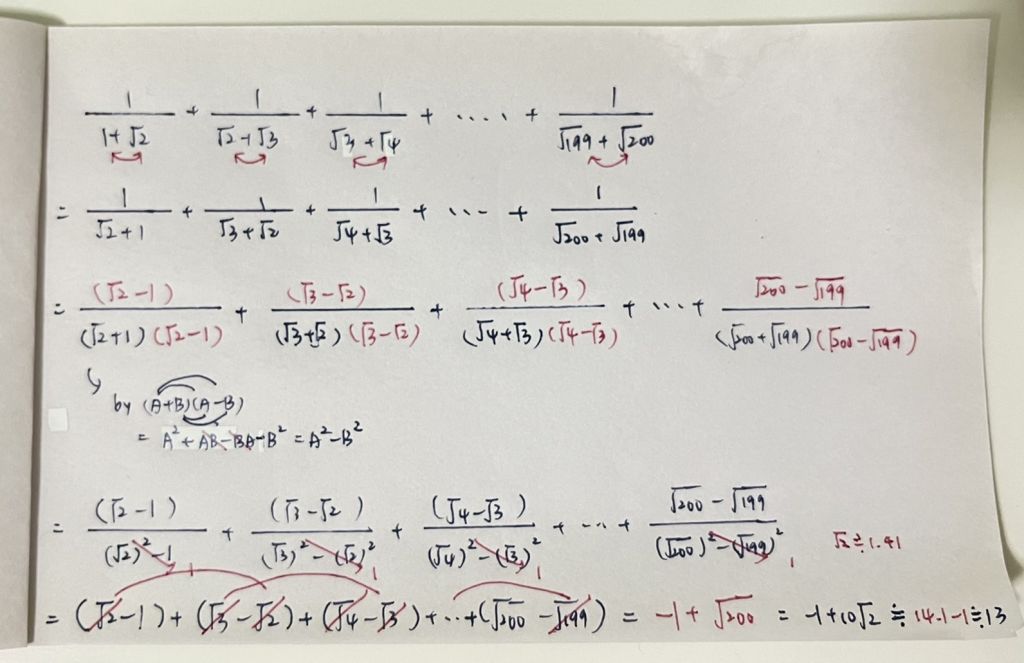 1/(1+√2) + 1/(√2+√3) + 1/(√3+√4) + ..... + 1/(√199+√200)
= 1/(√2+1) + 1/(√3+√2) + 1/(√4+√3) + ... + 1/(√200+√199)
= (√2-1)/((√2+1)(√2-1)) + (√3-√2)/((√3+√2)(√3-√2)) + (√4-√3)/((√4+√3)(√4-√3)) + ... + (√200-√199)/((√200+√199)(√200-√199))
by (A+B)(A-B)
= A²+AB-BA-B² = A²-B²
= (√2-1)/((√2)²-1) + (√3-√2)/((√3)²-(√2)²) + (√4-√3)/((√4)²-(√3)²) + ... + (√200-√199)/((√200)²-(√199)²) √2≒1.41
1 1 1 1
= (√2-1)+(√3-√2)+(√4-√3)+...+(√200-√199) = -1+√200 = -1+10√2 ≒ 14.1-1≒13